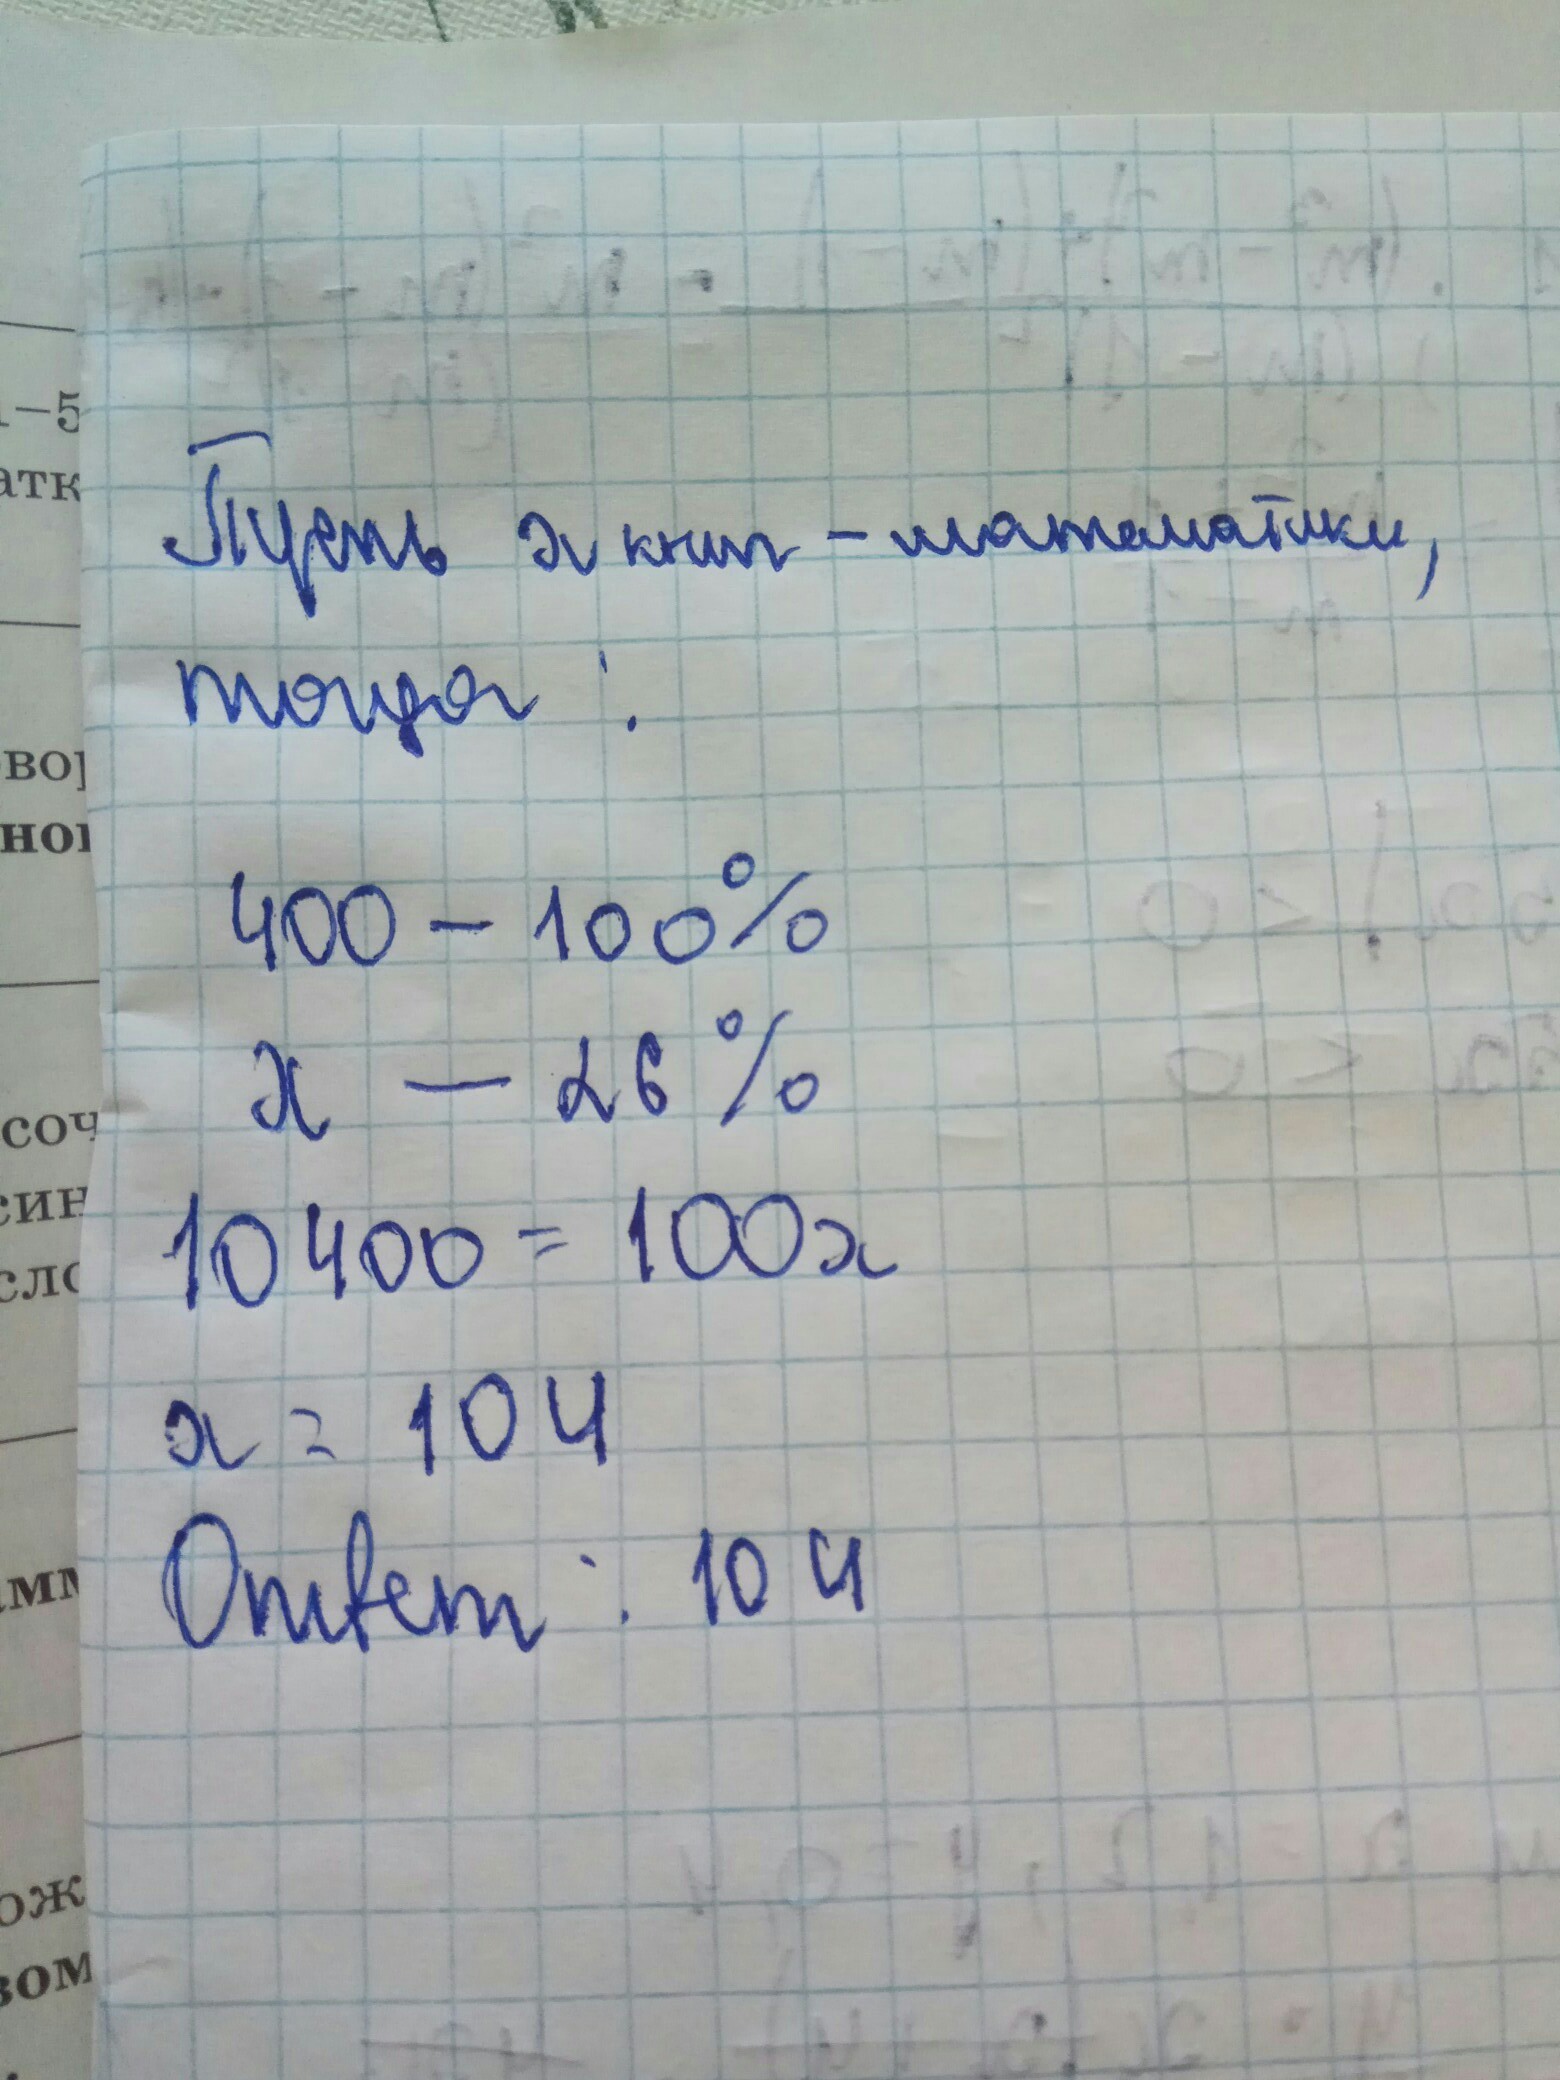 Пусть x книг - математики,
тогда :
400 - 100%
x - 26%
10400 = 100x
x = 104
Ответ : 104
1-5
атк
вор
ной
соч
син
сло
амм
ож
вом